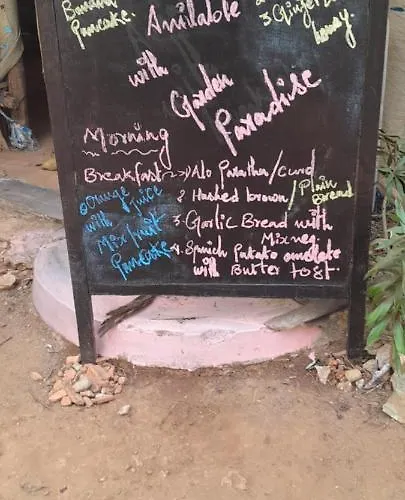 Banana
Pancake.
3 Ginger
honey
Amilable
with
Garden
Paradise
Morning
Breakfast → 1 Alo Paratha/Curd
2 Hashed brown/Plain
Bread
3. Garlic Bread with
Mixveg
4. Spnich Patato omelate
with Butter tost.
Orange juice
with
Mix fruit
Pancake